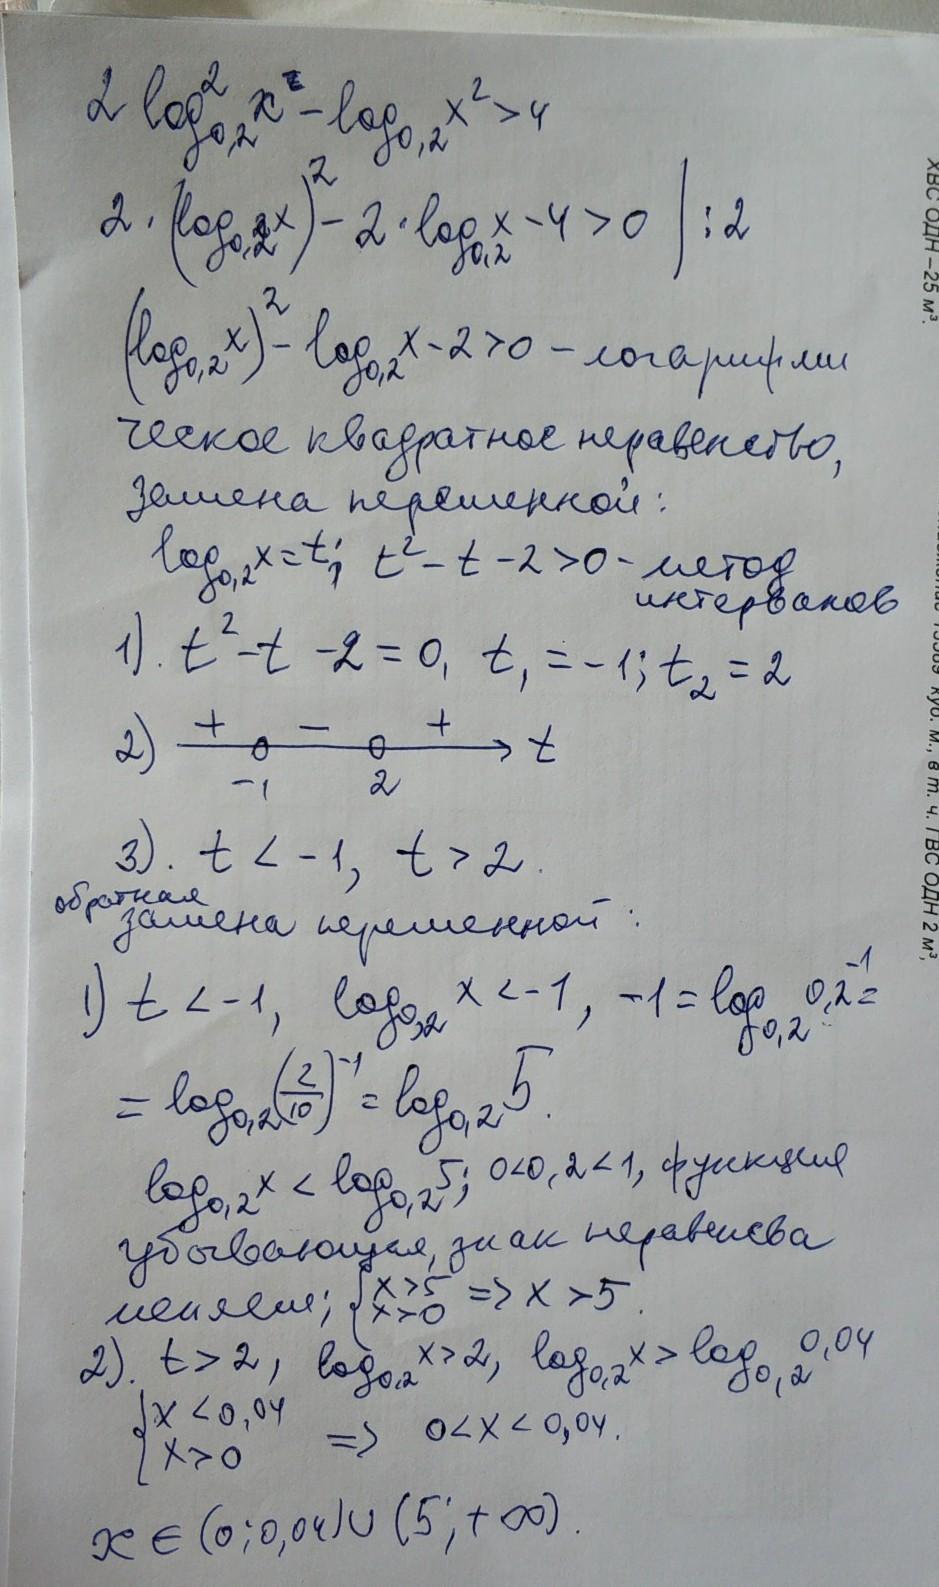 2 log²₀,₂ x - log₀,₂ x² > 4
2 · (log₀,₂ x)² - 2 · log₀,₂ x - 4 > 0 | : 2
(log₀,₂ x)² - log₀,₂ x - 2 > 0 - логарифми
ческое квадратное неравенство,
замена переменной:
log₀,₂ x = t; t² - t - 2 > 0 - метод
интервалов
1). t² - t - 2 = 0, t₁ = -1; t₂ = 2
2) + - + t
-1 2
3). t < -1, t > 2.
обратная
замена переменной:
1) t < -1, log₀,₂ x < -1, -1 = log₀,₂ 0,2⁻¹ =
= log₀,₂ (2/10)⁻¹ = log₀,₂ 5.
log₀,₂ x < log₀,₂ 5; 0<0,2<1, функция
убывающая, знак неравенсва
меняем; { x > 5
x > 0 => x > 5.
2). t > 2, log₀,₂ x > 2, log₀,₂ x > log₀,₂ 0,04
{ x < 0,04
x > 0 => 0 < x < 0,04.
x ∈ (0; 0,04) ∪ (5; +∞).
ХВС ОДН -25 м³.
куб. м., в т. ч. ГВС ОДН 2 м³,